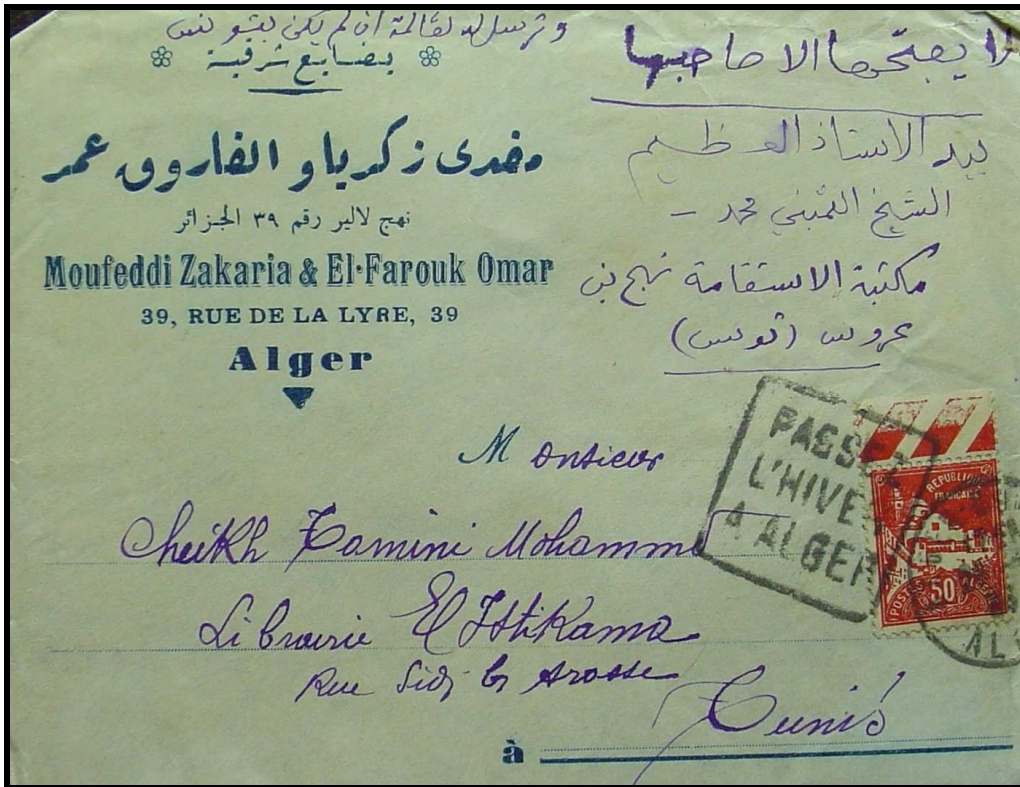 وترسل له لقالمة ان لم يكن بتونس
بضايع شرقية
مفدى زكريا و الفاروق عمر
نهج لالير رقم ٣٩ الجزائر
Moufeddi Zakaria & El-Farouk Omar
39, RUE DE LA LYRE, 39
Alger
لا يفتحها الا صاحبها
بيد الاستاذ العظيم
الشيخ الثميني محمد -
مكتبة الاستقامة نهج بن
عروس (تونس)
PASSEZ
L'HIVER
A ALGER
REPUBLIQUE
FRANÇAISE
50
POSTES ALGERIE
AL
Monsieur
Cheikh Tamini Mohammed
Librairie El Istikama
Rue Sidi b Arosse
à Tunis